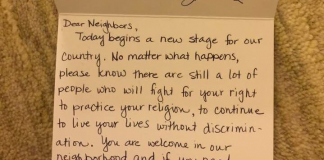 Dear Neighbors,
Today begins a new stage for our
country. No matter what happens,
please know there are still a lot of
people who will fight for your right
to practice your religion, to continue
to live your lives without discrimin-
ation. You are welcome in our
neighborhood and if you need